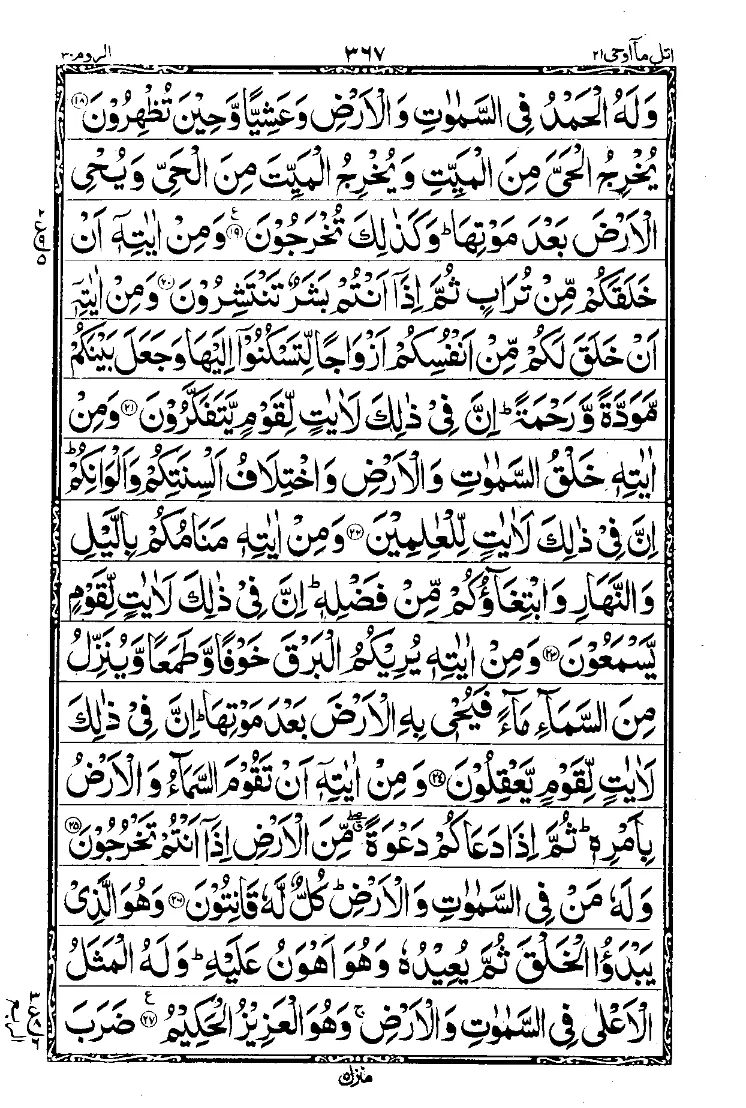 اتل مآ اوحی ۲۱
۳۶۷
الروم ۳۰
وَلَهُ الْحَمْدُ فِی السَّمٰوٰتِ وَ الْاَرْضِ وَعَشِیًّا وَّحِیْنَ تُظْهِرُوْنَ ۝۱۸
یُخْرِجُ الْحَیَّ مِنَ الْمَیِّتِ وَ یُخْرِجُ الْمَیِّتَ مِنَ الْحَیِّ وَ یُحْیِ
الْاَرْضَ بَعْدَ مَوْتِهَا ؕ وَكَذٰلِكَ تُخْرَجُوْنَ ۝۱۹ع وَمِنْ اٰیٰتِهٖۤ اَنْ
خَلَقَكُمْ مِّنْ تُرَابٍ ثُمَّ اِذَاۤ اَنْتُمْ بَشَرٌ تَنْتَشِرُوْنَ ۝۲۰ وَمِنْ اٰیٰتِهٖۤ
اَنْ خَلَقَ لَكُمْ مِّنْ اَنْفُسِكُمْ اَزْوَاجًا لِّتَسْكُنُوْۤا اِلَیْهَا وَجَعَلَ بَیْنَكُمْ
مَّوَدَّةً وَّ رَحْمَةً ؕ اِنَّ فِیْ ذٰلِكَ لَاٰیٰتٍ لِّقَوْمٍ یَّتَفَكَّرُوْنَ ۝۲۱ وَمِنْ
اٰیٰتِهٖ خَلْقُ السَّمٰوٰتِ وَ الْاَرْضِ وَ اخْتِلَافُ اَلْسِنَتِكُمْ وَاَلْوَانِكُمْ ؕ
اِنَّ فِیْ ذٰلِكَ لَاٰیٰتٍ لِّلْعٰلِمِیْنَ ۝۲۲ وَمِنْ اٰیٰتِهٖ مَنَامُكُمْ بِالَّیْلِ
وَ النَّهَارِ وَ ابْتِغَآؤُكُمْ مِّنْ فَضْلِهٖ ؕ اِنَّ فِیْ ذٰلِكَ لَاٰیٰتٍ لِّقَوْمٍ
یَّسْمَعُوْنَ ۝۲۳ وَمِنْ اٰیٰتِهٖ یُرِیْكُمُ الْبَرْقَ خَوْفًا وَّطَمَعًا وَّیُنَزِّلُ
مِنَ السَّمَآءِ مَآءً فَیُحْیٖ بِهِ الْاَرْضَ بَعْدَ مَوْتِهَا ؕ اِنَّ فِیْ ذٰلِكَ
لَاٰیٰتٍ لِّقَوْمٍ یَّعْقِلُوْنَ ۝۲۴ وَ مِنْ اٰیٰتِهٖۤ اَنْ تَقُوْمَ السَّمَآءُ وَ الْاَرْضُ
بِاَمْرِهٖ ؕ ثُمَّ اِذَا دَعَاكُمْ دَعْوَةً ۖۗ مِّنَ الْاَرْضِ اِذَاۤ اَنْتُمْ تَخْرُجُوْنَ ۝۲۵
وَلَهٗ مَنْ فِی السَّمٰوٰتِ وَ الْاَرْضِ ؕ كُلٌّ لَّهٗ قَانِتُوْنَ ۝۲۶ وَهُوَ الَّذِیْ
یَبْدَؤُا الْخَلْقَ ثُمَّ یُعِیْدُهٗ وَهُوَ اَهْوَنُ عَلَیْهِ ؕ وَلَهُ الْمَثَلُ
الْاَعْلٰی فِی السَّمٰوٰتِ وَ الْاَرْضِ ۚ وَهُوَ الْعَزِیْزُ الْحَكِیْمُ ۝۲۷ع ضَرَبَ
منزل ۵